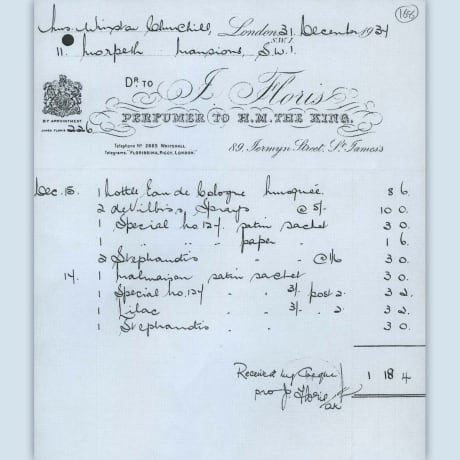 166
Mrs. Winston Churchill, London, 31 December 1934
S.W.1.
11. Morpeth Mansions, S.W.1.
Dr. TO
J Floris
PERFUMER TO H.M. THE KING.
BY APPOINTMENT
226
Telephone No 2885 Whitehall
Telegrams, "FLORISSINA, PICCY, LONDON."
89, Jermyn Street, St. James's
Dec. 15. 1 bottle Eau de Cologne 8 6.
2 deVilbiss Sprays @ 5/- 10 0.
1 Special No. 127 satin sachet 3 0.
1 " " " paper " 1 6
2 Stephanotis " @ 1/6 3 0.
17. 1 malmaison satin sachet 3 0.
1 Special No. 127 " " 3/. post 2. 3 2.
1 Lilac " " 3/. " 2. 3 2.
1 Stephanotis " " 3 0.
Received by Cheque 1 18 4
pro J. Floris